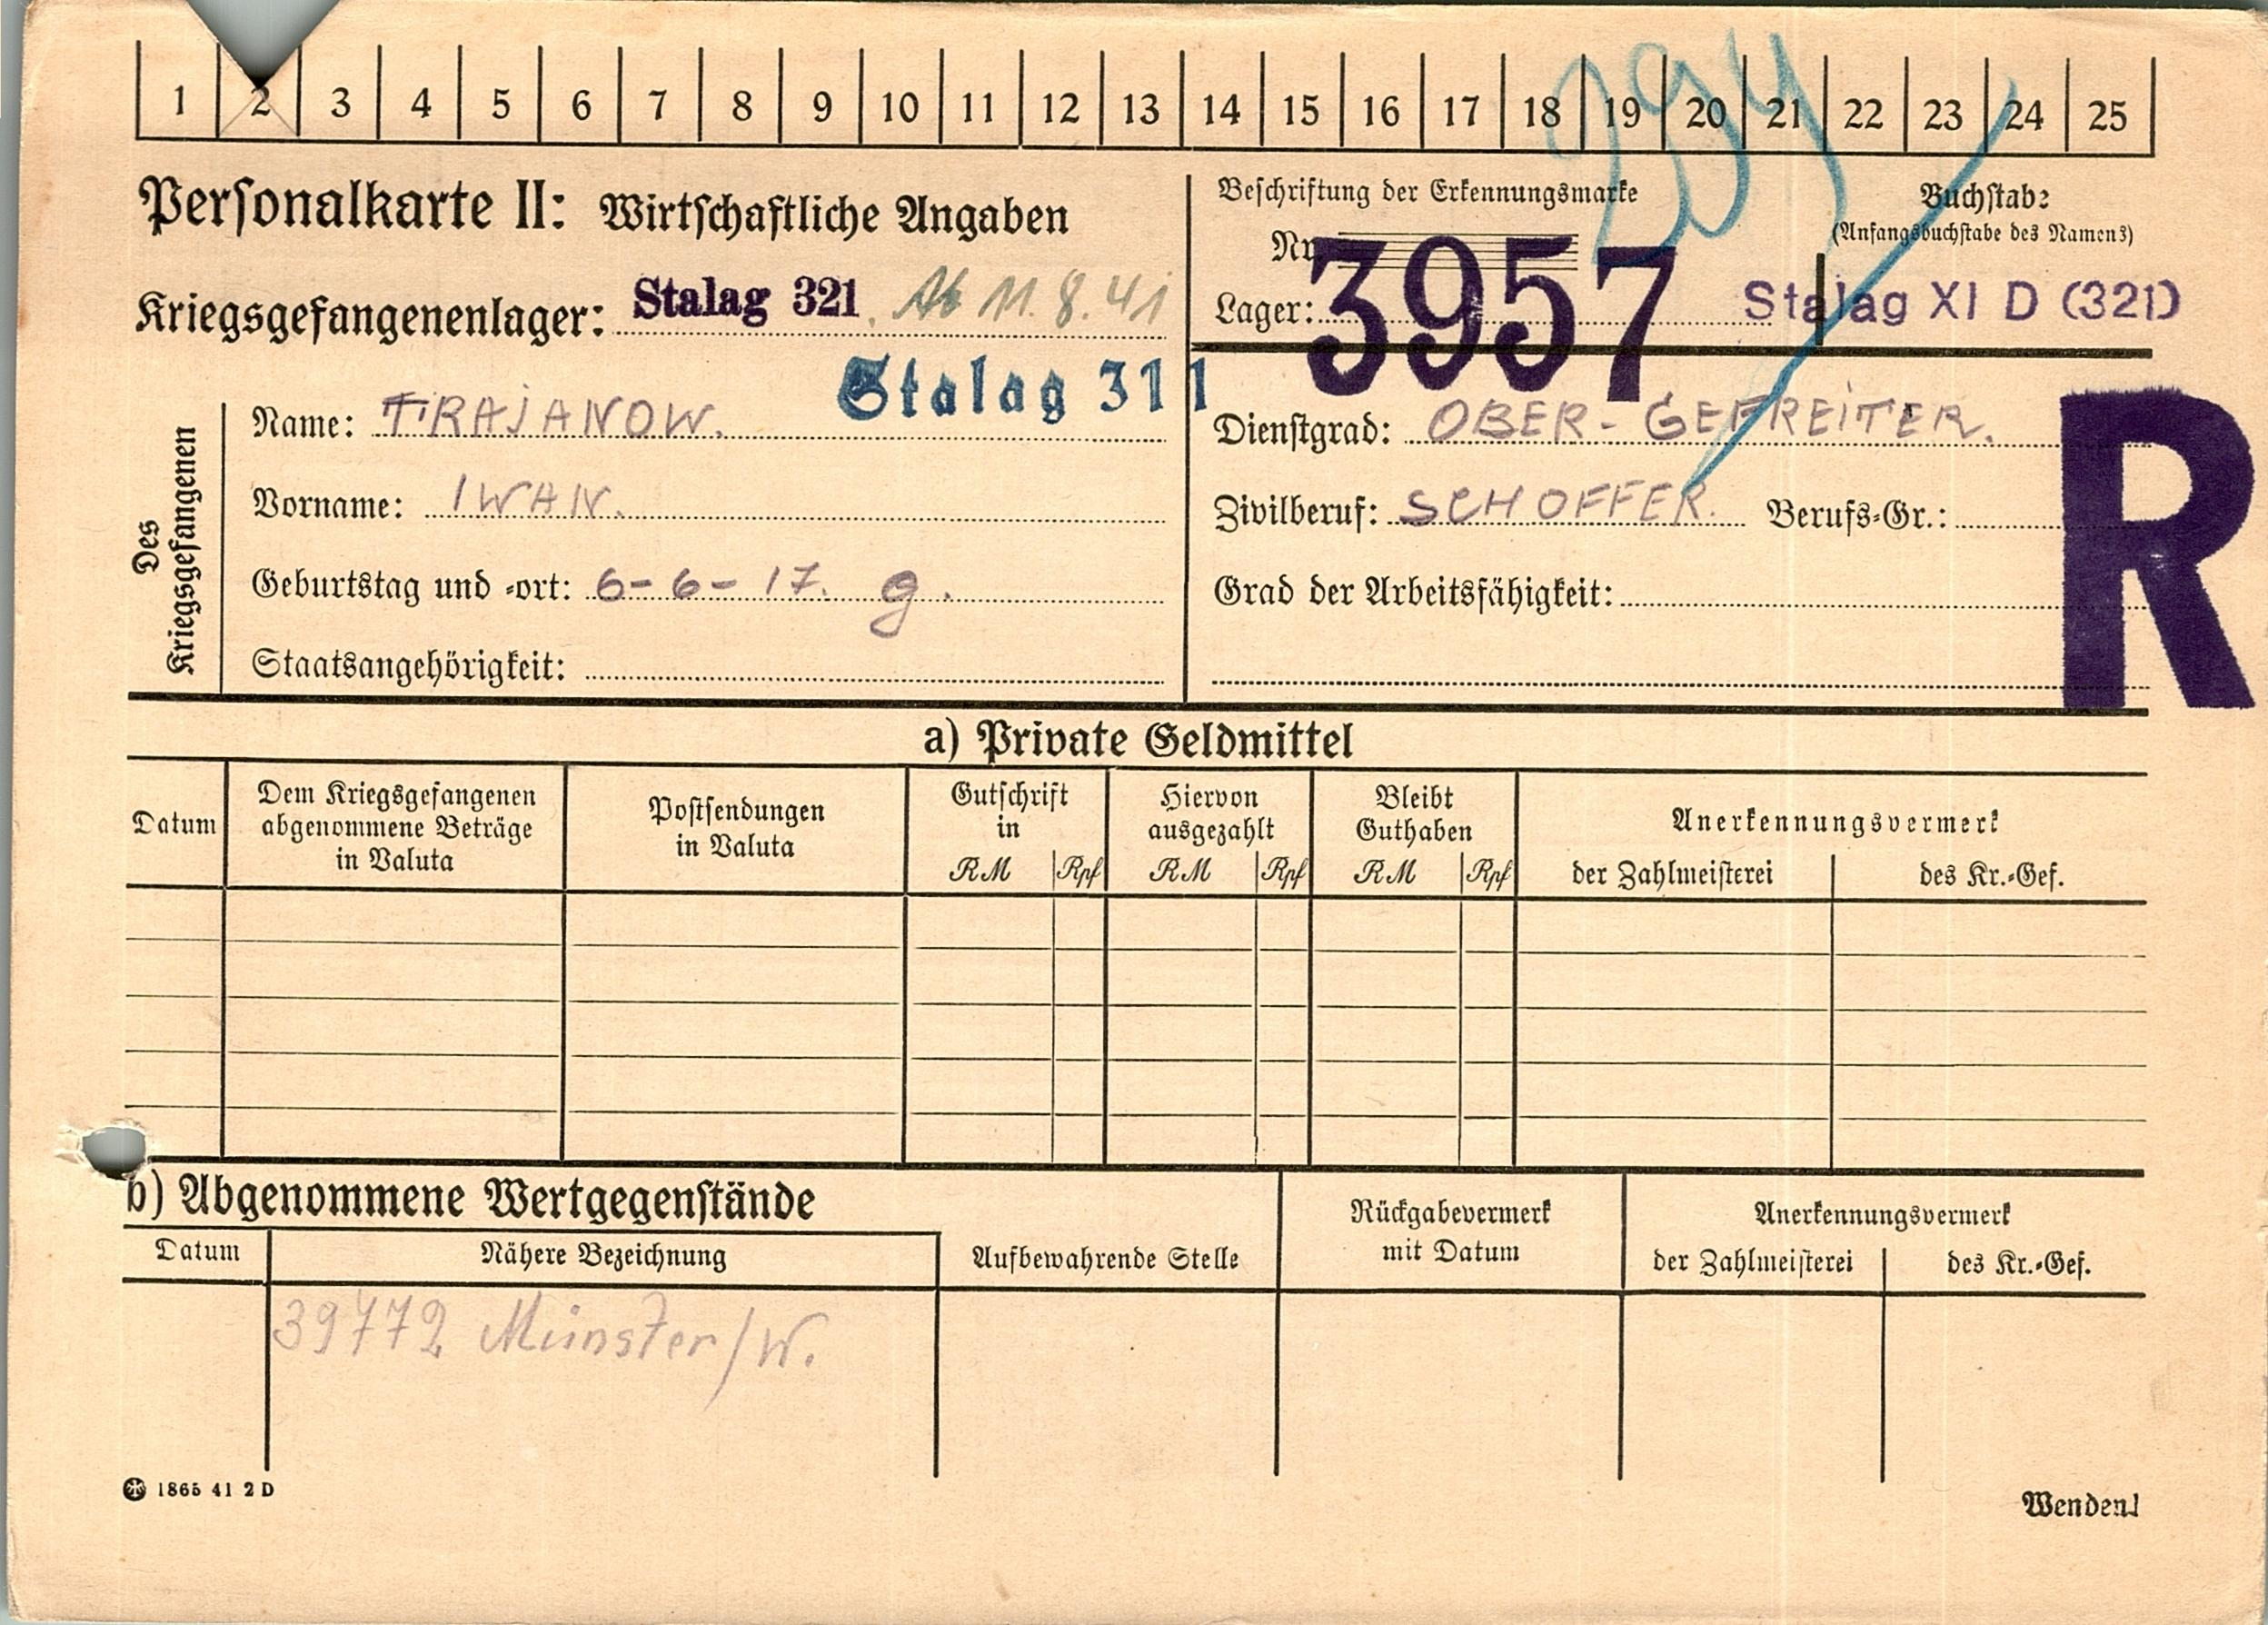 1 2 3 4 5 6 7 8 9 10 11 12 13 14 15 16 17 18 19 20 21 22 23 24 25
Personalkarte II: Wirtschaftliche Angaben
Beschriftung der Erkennungsmarke
Nr. 3957
Lager: Stalag XI D (321)
Buchstabe
(Anfangsbuchstabe des Namens)
Kriegsgefangenenlager: Stalag 321. Ab 11. 8. 41
Stalag 311
Des Kriegsgefangenen
Name: TRAJANOW.
Vorname: IWAN.
Geburtstag und -ort: 6-6-17. g.
Staatsangehörigkeit:
Dienstgrad: OBER-GEFREITER.
Zivilberuf: SCHOFFER. Berufs-Gr.:
Grad der Arbeitsfähigkeit:
R
a) Private Geldmittel
Datum
Dem Kriegsgefangenen
abgenommene Beträge
in Valuta
Postsendungen
in Valuta
Gutschrift
in
RM Rpf
Hiervon
ausgezahlt
RM Rpf
Bleibt
Guthaben
RM Rpf
Anerkennungsvermerk
der Zahlmeisterei des Kr.-Gef.
b) Abgenommene Wertgegenstände
Datum Nähere Bezeichnung
Aufbewahrende Stelle
Rückgabevermerk
mit Datum
Anerkennungsvermerk
der Zahlmeisterei des Kr.-Gef.
39772 Münster/W.
1865 41 2 D
Wenden!